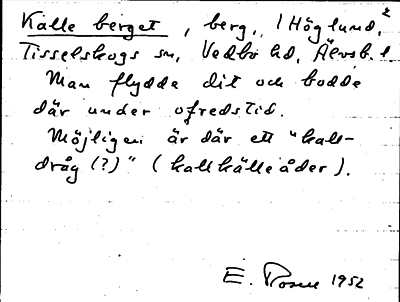 Kalle berget, berg, 1 Höglund, 2
Tisselskogs sn, Vedbo hd, Älvsb. l.
Man flydde dit och bodde
där under ofredstid.
Möjligen är där ett "kall-
dråg (?)" (kallkälleåder).
E. Rosen 1952